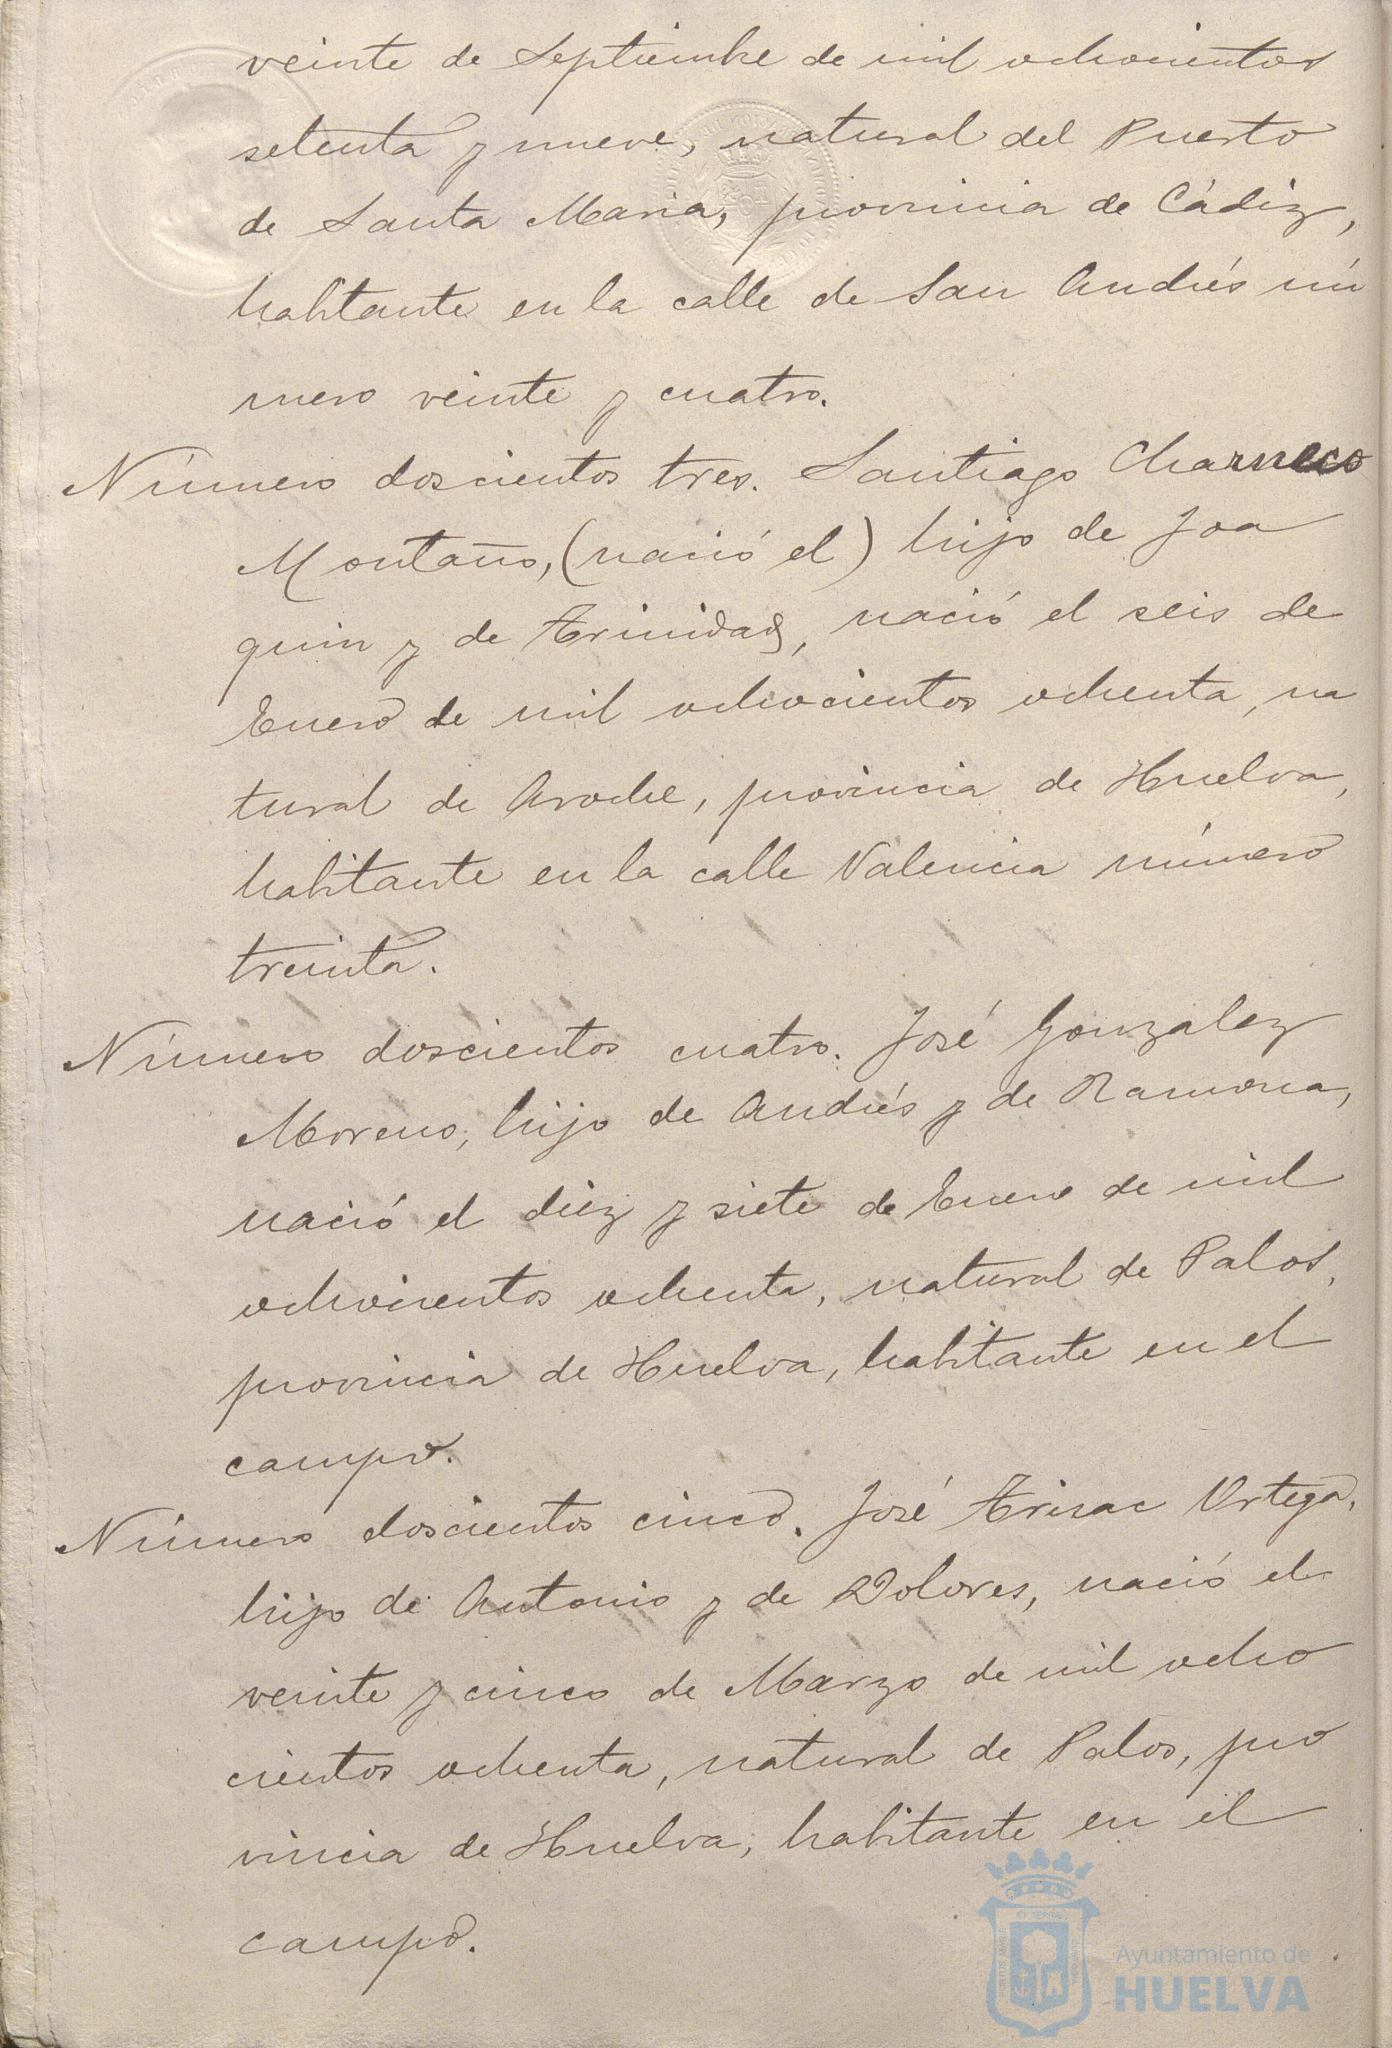 veinte de Septiembre de mil ochocientos
setenta y nueve, natural del Puerto
de Santa Maria, provincia de Cádiz,
habitante en la calle de San Andrés nú
mero veinte y cuatro.
Número doscientos tres. Santiago Charneco
Montaño, (nació el) hijo de Joa
quin y de Trinidad, nació el seis de
Enero de mil ochocientos ochenta, na
tural de Aroche, provincia de Huelva,
habitante en la calle Valencia número
treinta.
Número doscientos cuatro. José Gonzalez
Moreno, hijo de Andrés y de Ramona,
nació el diez y siete de Enero de mil
ochocientos ochenta, natural de Palos,
provincia de Huelva, habitante en el
campo.
Número doscientos cinco. José Trisac Ortega,
hijo de Antonio y de Dolores, nació el
veinte y cinco de Marzo de mil ocho
cientos ochenta, natural de Palos, pro
vincia de Huelva, habitante en el
campo.
Ayuntamiento de
HUELVA